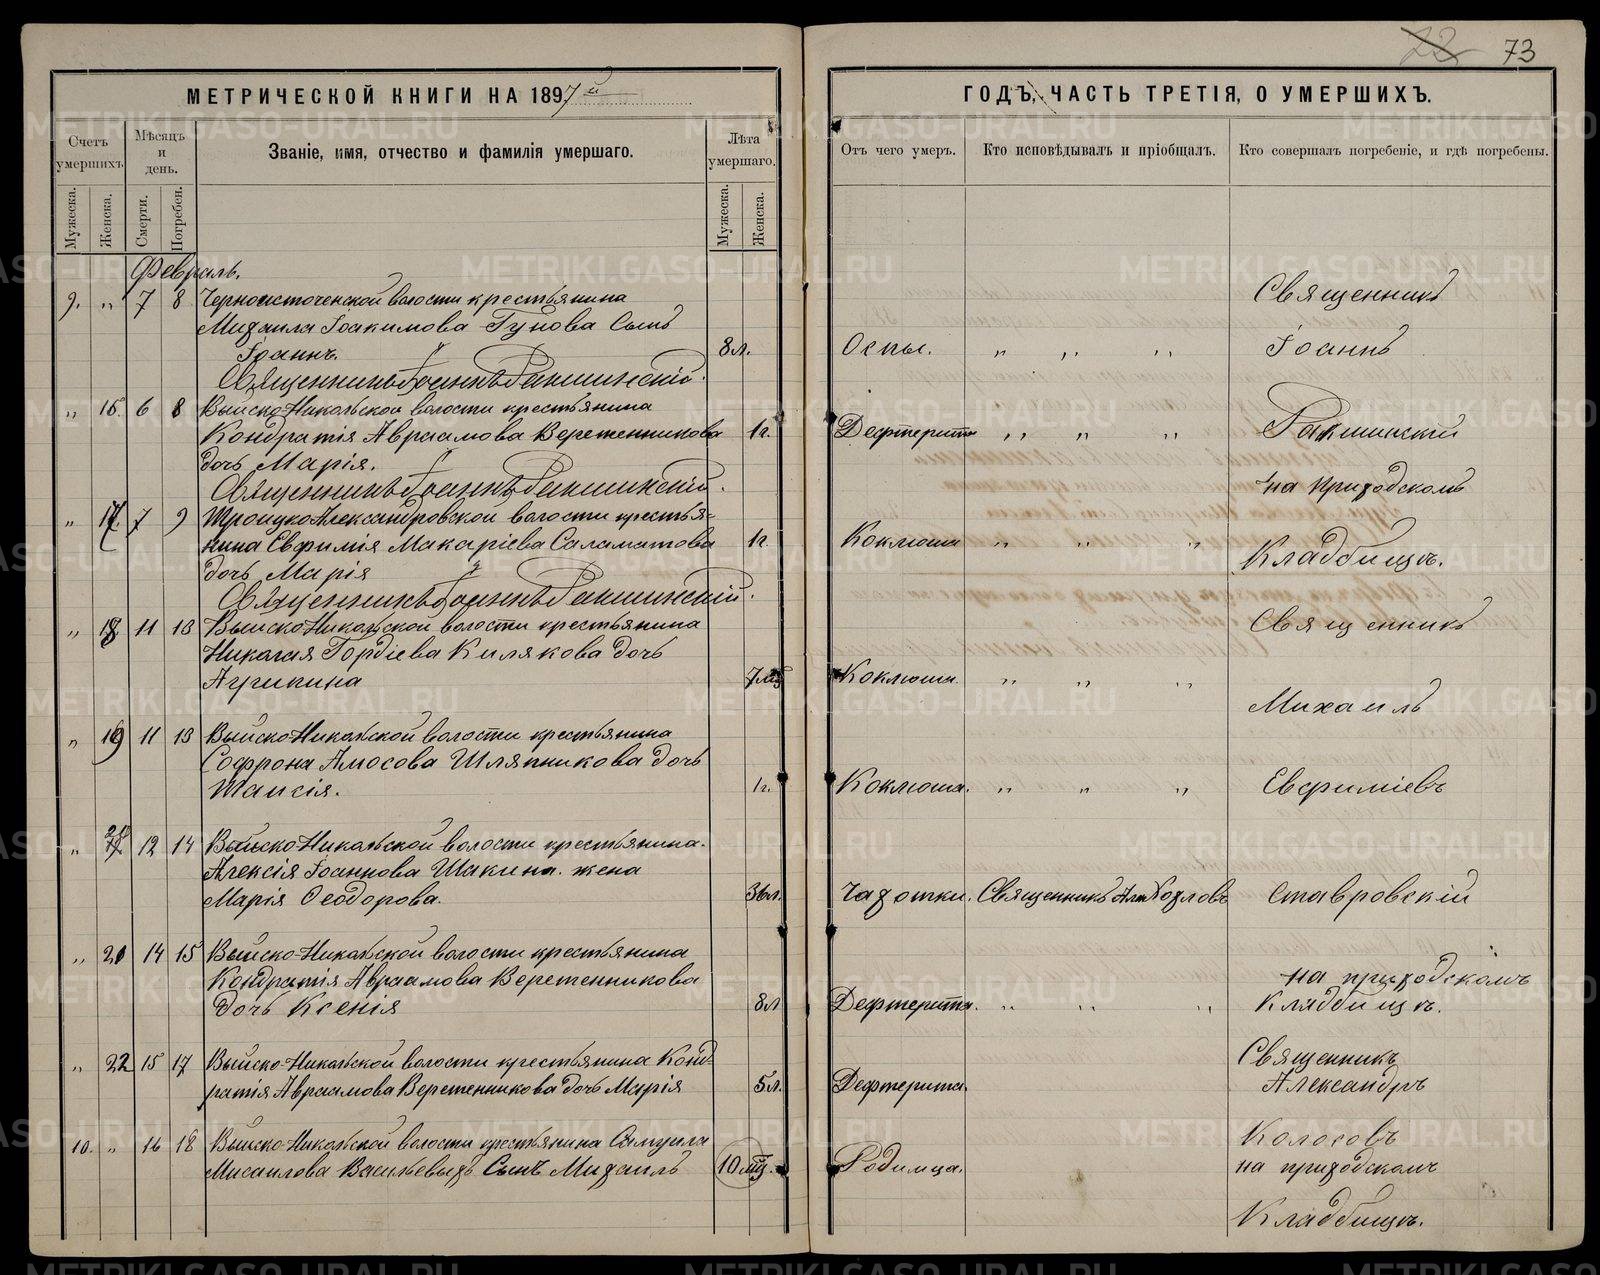 73
МЕТРИЧЕСКОЙ КНИГИ НА 1897й
ГОДЪ, ЧАСТЬ ТРЕТІЯ, О УМЕРШИХЪ.
Счетъ умершихъ.
Мѣсяцъ и день.
Званіе, имя, отчество и фамилія умершаго.
Лѣта умершаго.
Отъ чего умеръ.
Кто исповѣдывалъ и пріобщалъ.
Кто совершалъ погребеніе, и гдѣ погребены.
Мужеска.
Женска.
Смерти.
Погребен.
Мужеска.
Женска.
Февраль.
9. „ 7 8 Черноисточенской волости крестьянина
Михаила Іоакимова Гунова Сынъ
Іоаннъ. 8 л. Оспы. „ „ „
Священникъ Іоаннъ Ракшинскій.
„ 16. 6 8 Выйско-Никольской волости крестьянина
Кондратія Авраамова Веретенникова 1 г. Дефтерита „ „ „
дочь Марія.
Священникъ Іоаннъ Ракшинскій.
„ 17. 7 9 Троицко Александровской волости крестья=
нина Евфимія Макаріева Саламатова 1 г. Коклюша „ „ „
дочь Марія
Священникъ Іоаннъ Ракшинскій.
„ 18 11 13 Выйско Никольской волости крестьянина
Николая Гордіева Килякова дочь
Агрипина 7 мц Коклюша. „ „ „
„ 19 11 13 Выйско Никольской волости крестьянина
Софрона Амосова Шляпникова дочь
Таисія. 1 г. Коклюша. „ „ „
„ 20 12 14 Выйско-Никольской волости крестьянина.
Алексія Іоаннова Шакина. жена
Марія Ѳеодорова. 36 л. Чахотки. Священникъ Козловъ
„ 21 14 15 Выйско-Никольской волости крестьянина
Кондратія Авраамова Веретенникова
дочь Ксенія 8 л Дефтерита. „ „ „
„ 22 15 17 Выйско-Никольской волости крестьянина Конд-
ратія Авраамова Веретенникова дочь Марія 5 л. Дефтерита.
10. „ 16 18 Выйско-Никольской волости крестьянина Самуила
Мисаилова Васильевыхъ Сынъ Михаилъ 10 мц. Родимца.
Священникъ
Іоаннъ
Ракшинскій
на приходскомъ
Кладбищѣ.
Священникъ
Михаилъ
Евфиміевъ
Ставровскій
на приходскомъ
Кладбищѣ.
Священникъ
Александръ
Колосовъ
на приходскомъ
Кладбищѣ.
METRIKI.GASO-URAL.RU